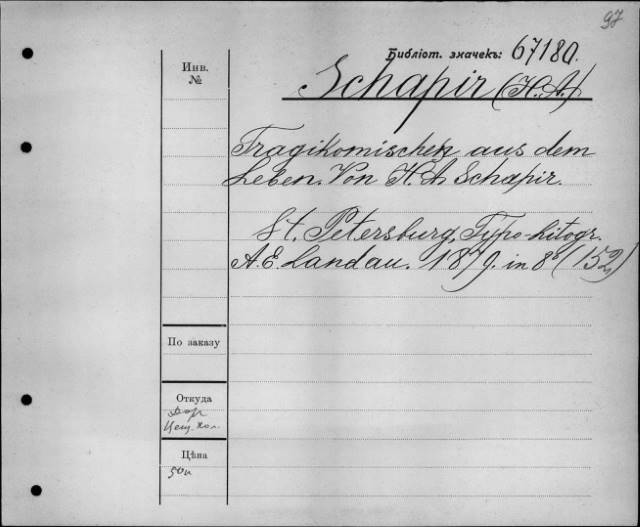 97
Библіот. значекъ: 67180.
Инв.
№
Schapir (H. A.)
Tragikomischen aus dem
Leben. Von H. A. Schapir.
St. Petersburg, Typo-Litogr.
A. E. Landau. 1879. in 8° (152)
По заказу
Откуда
Дар
Ценз. Ком.
Цѣна
50к